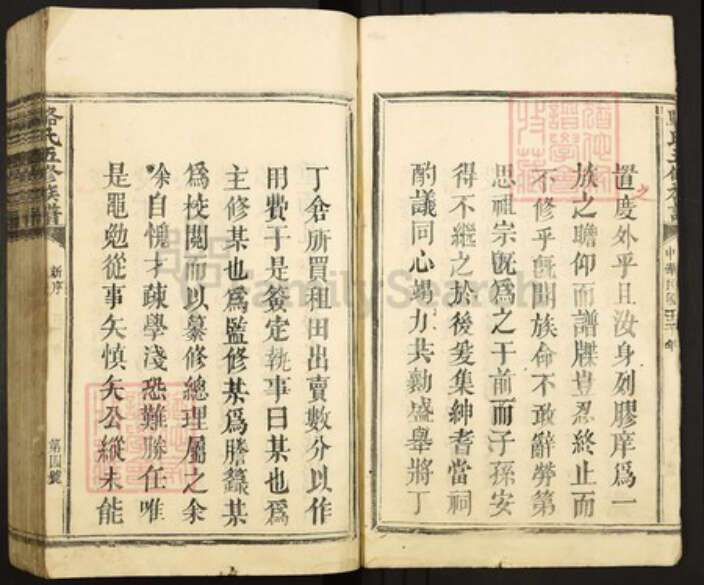 置度外乎且汝身列膠庠爲一
族之瞻仰而譜牒豈忍終止而
不修乎旣聞族命不敢辭勞第
思祖宗旣爲之于前而子孫安
得不繼之於後爰集紳耆當祠
酌議同心竭力共勷盛舉將丁
中華民國三十年
丁會所買租田出賣數分以作
用費于是簽定執事曰某也爲
主修某也爲監修某爲謄錄某
爲校閱而以纂修總理屬之余
余自愧才疎學淺恐難勝任唯
是黽勉從事矢慎矢公縱未能
駱氏五修族譜
新序
第四號
FamilySearch